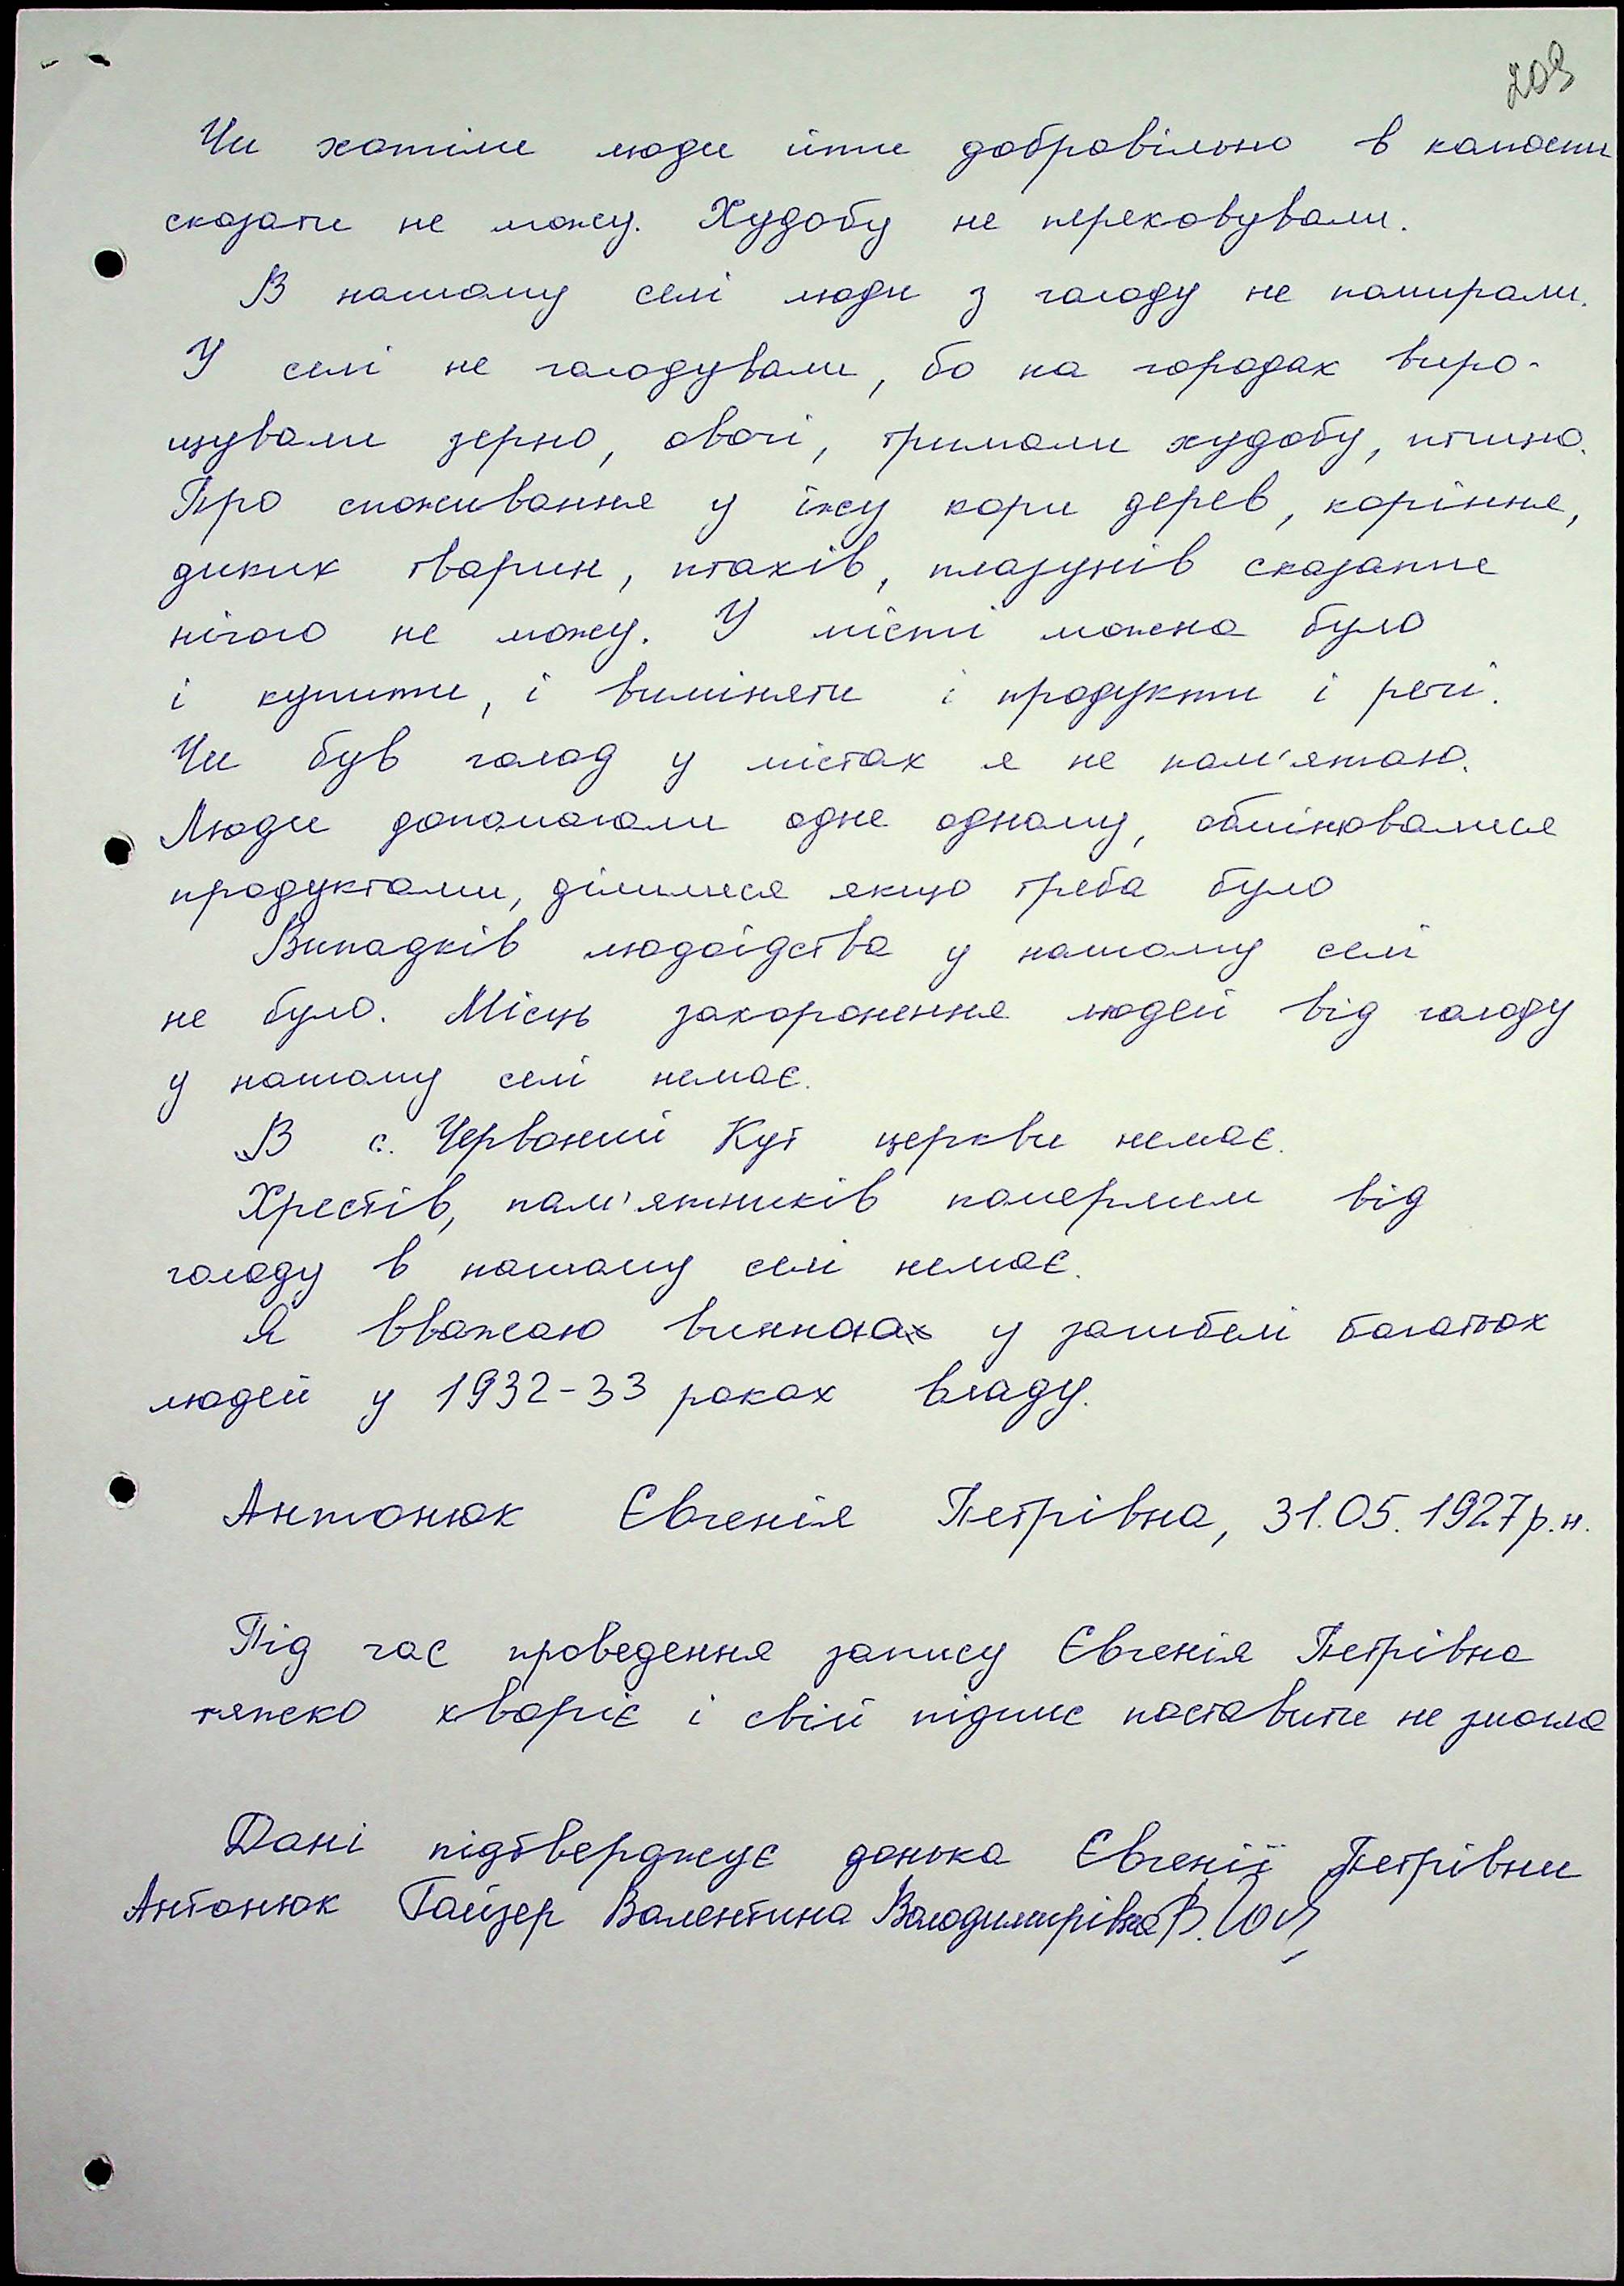 203
Чи хотіли люди йти добровільно в колгоспи
сказати не можу. Худобу не переховували.
В нашому селі люди з голоду не помирали.
У селі не голодували, бо на городах виро-
щували зерно, овочі, тримали худобу, птицю.
Про споживання у їжу кори дерев, коріння,
диких тварин, птахів, плазунів сказати
нічого не можу. У місті можна було
і купити, і виміняти і продукти і речі.
Чи був голод у містах я не пам'ятаю.
Люди допомогали одне одному, обмінювалися
продуктами, ділилися якщо треба було
Випадків людоїдства у нашому селі
не було. Місць захоронення людей від голоду
у нашому селі немає.
В с. Червоний Кут церкви немає.
Хрестів, пам'ятників померлим від
голоду в нашому селі немає.
Я вважаю у загибелі багатьох
людей у 1932-33 роках владу.
Антонюк Євгенія Петрівна, 31.05.1927р.н.
Під час проведення запису Євгенія Петрівна
тяжко хворіє і свій підпис поставити не змогла
Дані підтверджує донька Євгенії Петрівни
Антонюк Гайзер Валентина Володимирівна